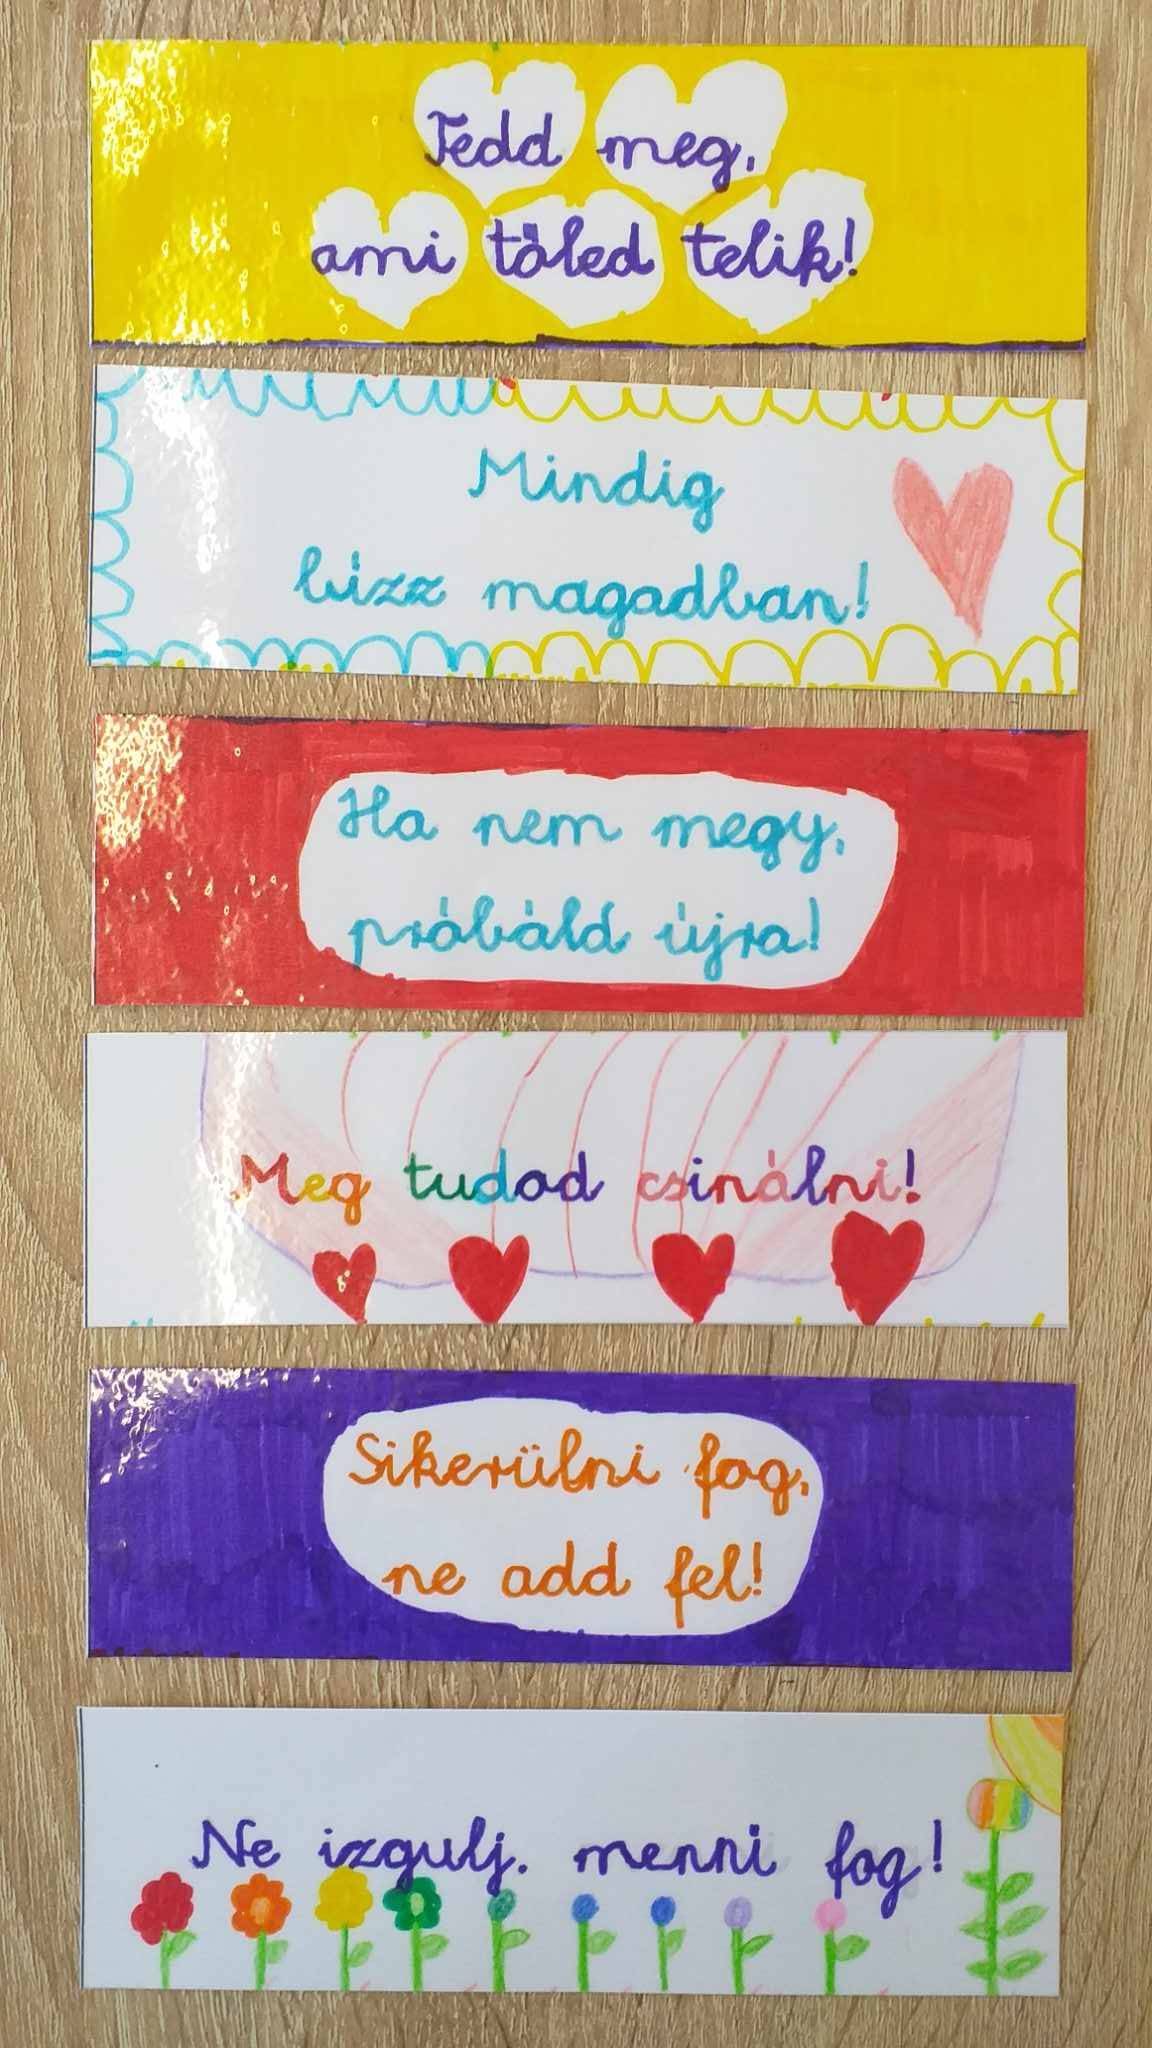 Tedd meg,
ami tőled telik!
Mindig
bízz magadban!
Ha nem megy,
próbáld újra!
Meg tudod csinálni!
Sikerülni fog,
ne add fel!
Ne izgulj, menni fog!